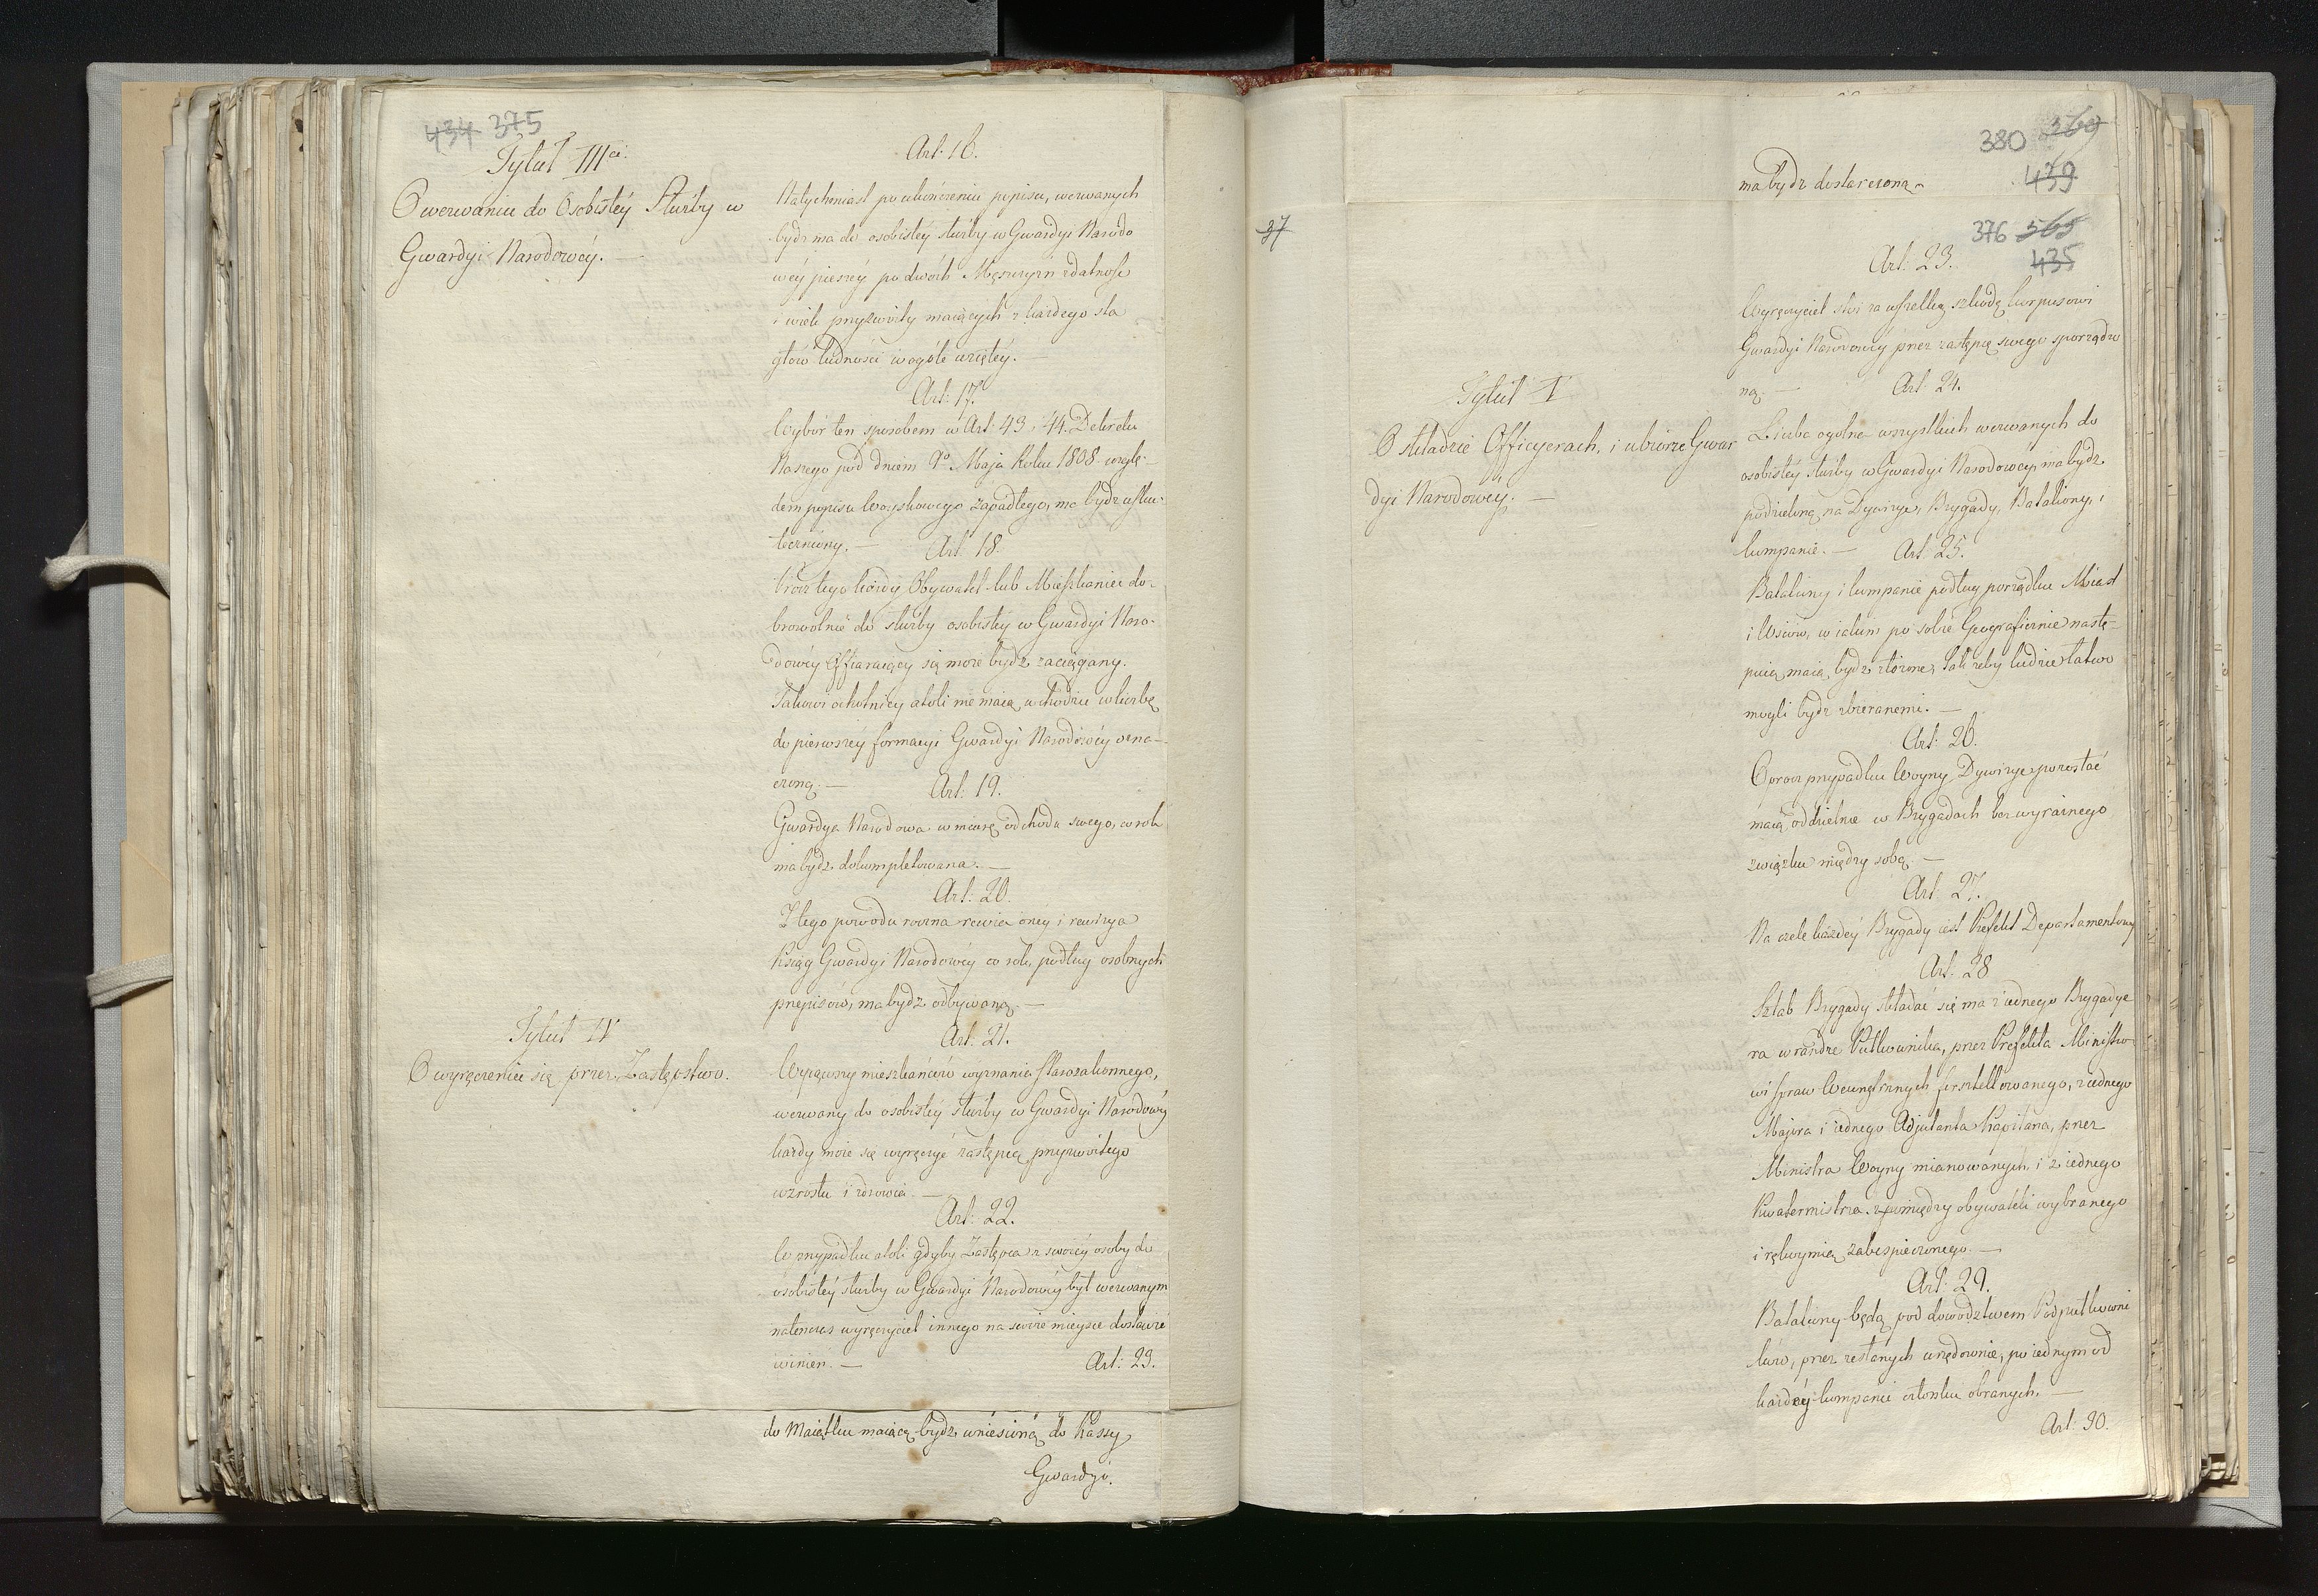 434 375
Tytuł IIIci
O wezwaniu do Osobistéy Służby w
Gwardyi Narodowéy.
Art: 16.
Natychmiast po ukończeniu popisu, wezwanych
bydź ma do osobistéy służby w Gwardyi Narodo
wéy pieszéy po dwóch Męszczyzn zdatność
i wiek przyzwoity maiących z każdego sta
głów ludności w ogóle wziętéy. —
Art: 17.
Wybór ten sposobem w Art: 43, 44. Dekretu
Naszego pod dniem 9o Maja Roku 1808 wzglę-
dem popisu Woyskowego zapadłego, ma bydź usku-
teczniony. —
Art: 18.
Prócz tego każdy Obywatel lub Mieszkaniec do-
browolnie do służby osobistéy w Gwardyi Naro-
dowéy offiaruiący się może bydź zaciągany.
Takowi ochotnicy atoli nie maią wchodzić w liczbę
do pierwszéy formacyi Gwardyi Narodowéy ozna-
czoną. —
Art: 19.
Gwardya Narodowa w miarę odchodu swego, co rok
ma bydź dokompletowana. —
Art: 20.
Z tego powodu roczna rewia onéy i rewizya
Ksiąg Gwardyi Narodowéy co rok, podług osobnych
przepisów, ma bydź odbywaną. —
Tytuł IV
O wyręczeniu się przez Zastępstwo.
Art: 21.
Wyiąwszy mieszkańców wyznania Starozakonnego,
wezwany do osobistéy służby w Gwardyi Narodowéy
każdy może się wyręczyć zastępcą przyzwoitego
wzrostu i zdrowia. —
Art: 22.
W przypadku atoli gdyby Zastępca z swoiéy osoby do
osobistéy służby w Gwardyi Narodowéy był wezwanym
natenczas wyręczyciel innego na swoie mieysce dostawić
winien. —
Art: 23.
do Maiątku maiącą bydź wniesioną do Kassy
Gwardyi.
380 369
439
ma bydź dostarczona
37
376 365
435
Art: 23.
Wyręczyciel stoi za wszelką szkodę korpusowi
Gwardyi Narodowéy przez zastępcę swego sporządzo
ną. —
Tytuł V
O składzie Officyerach, i ubiorze Gwar
dyi Narodowéy. —
Art: 24.
Liczba ogólna wszystkich wezwanych do
osobistéy służby w Gwardyi Narodowéy, ma bydź
podzieloną na Dywizye, Brygady, Bataliony, i
kompanie. —
Art: 25.
Bataliony i kompanie podług porządku Miast
i Wsiów, w iakim po sobie Geograficznie nastę-
puią, maią bydź złożone, tak żeby ludzie łatwo
mogli bydź zbieranemi. —
Art: 26.
Oprócz przypadku Woyny, Dywizye pozostać
maią oddzielnie w Brygadach bez wyraźnego
związku między sobą. —
Art: 27.
Na czele każdéy Brygady iest Prefekt Departamentowy
Art: 28
Sztab Brygady składać się ma z iednego Brygadye
ra w randze Pułkownika, przez Prefekta Ministro
wi spraw Wewnętrznych przedstawionego, z iednego
Majora i iednego Adjutanta Kapitana, przez
Ministra Woyny mianowanych, i z iednego
Kwatermistrza z pomiędzy obywateli wybranego
i rękoymią zabespieczonego. —
Art: 29.
Bataliony będą pod dowództwem Podpułkowni
ków, przez zesłanych urzędownie, po iednym od
każdéy kompanii członku obranych. —
Art: 30.